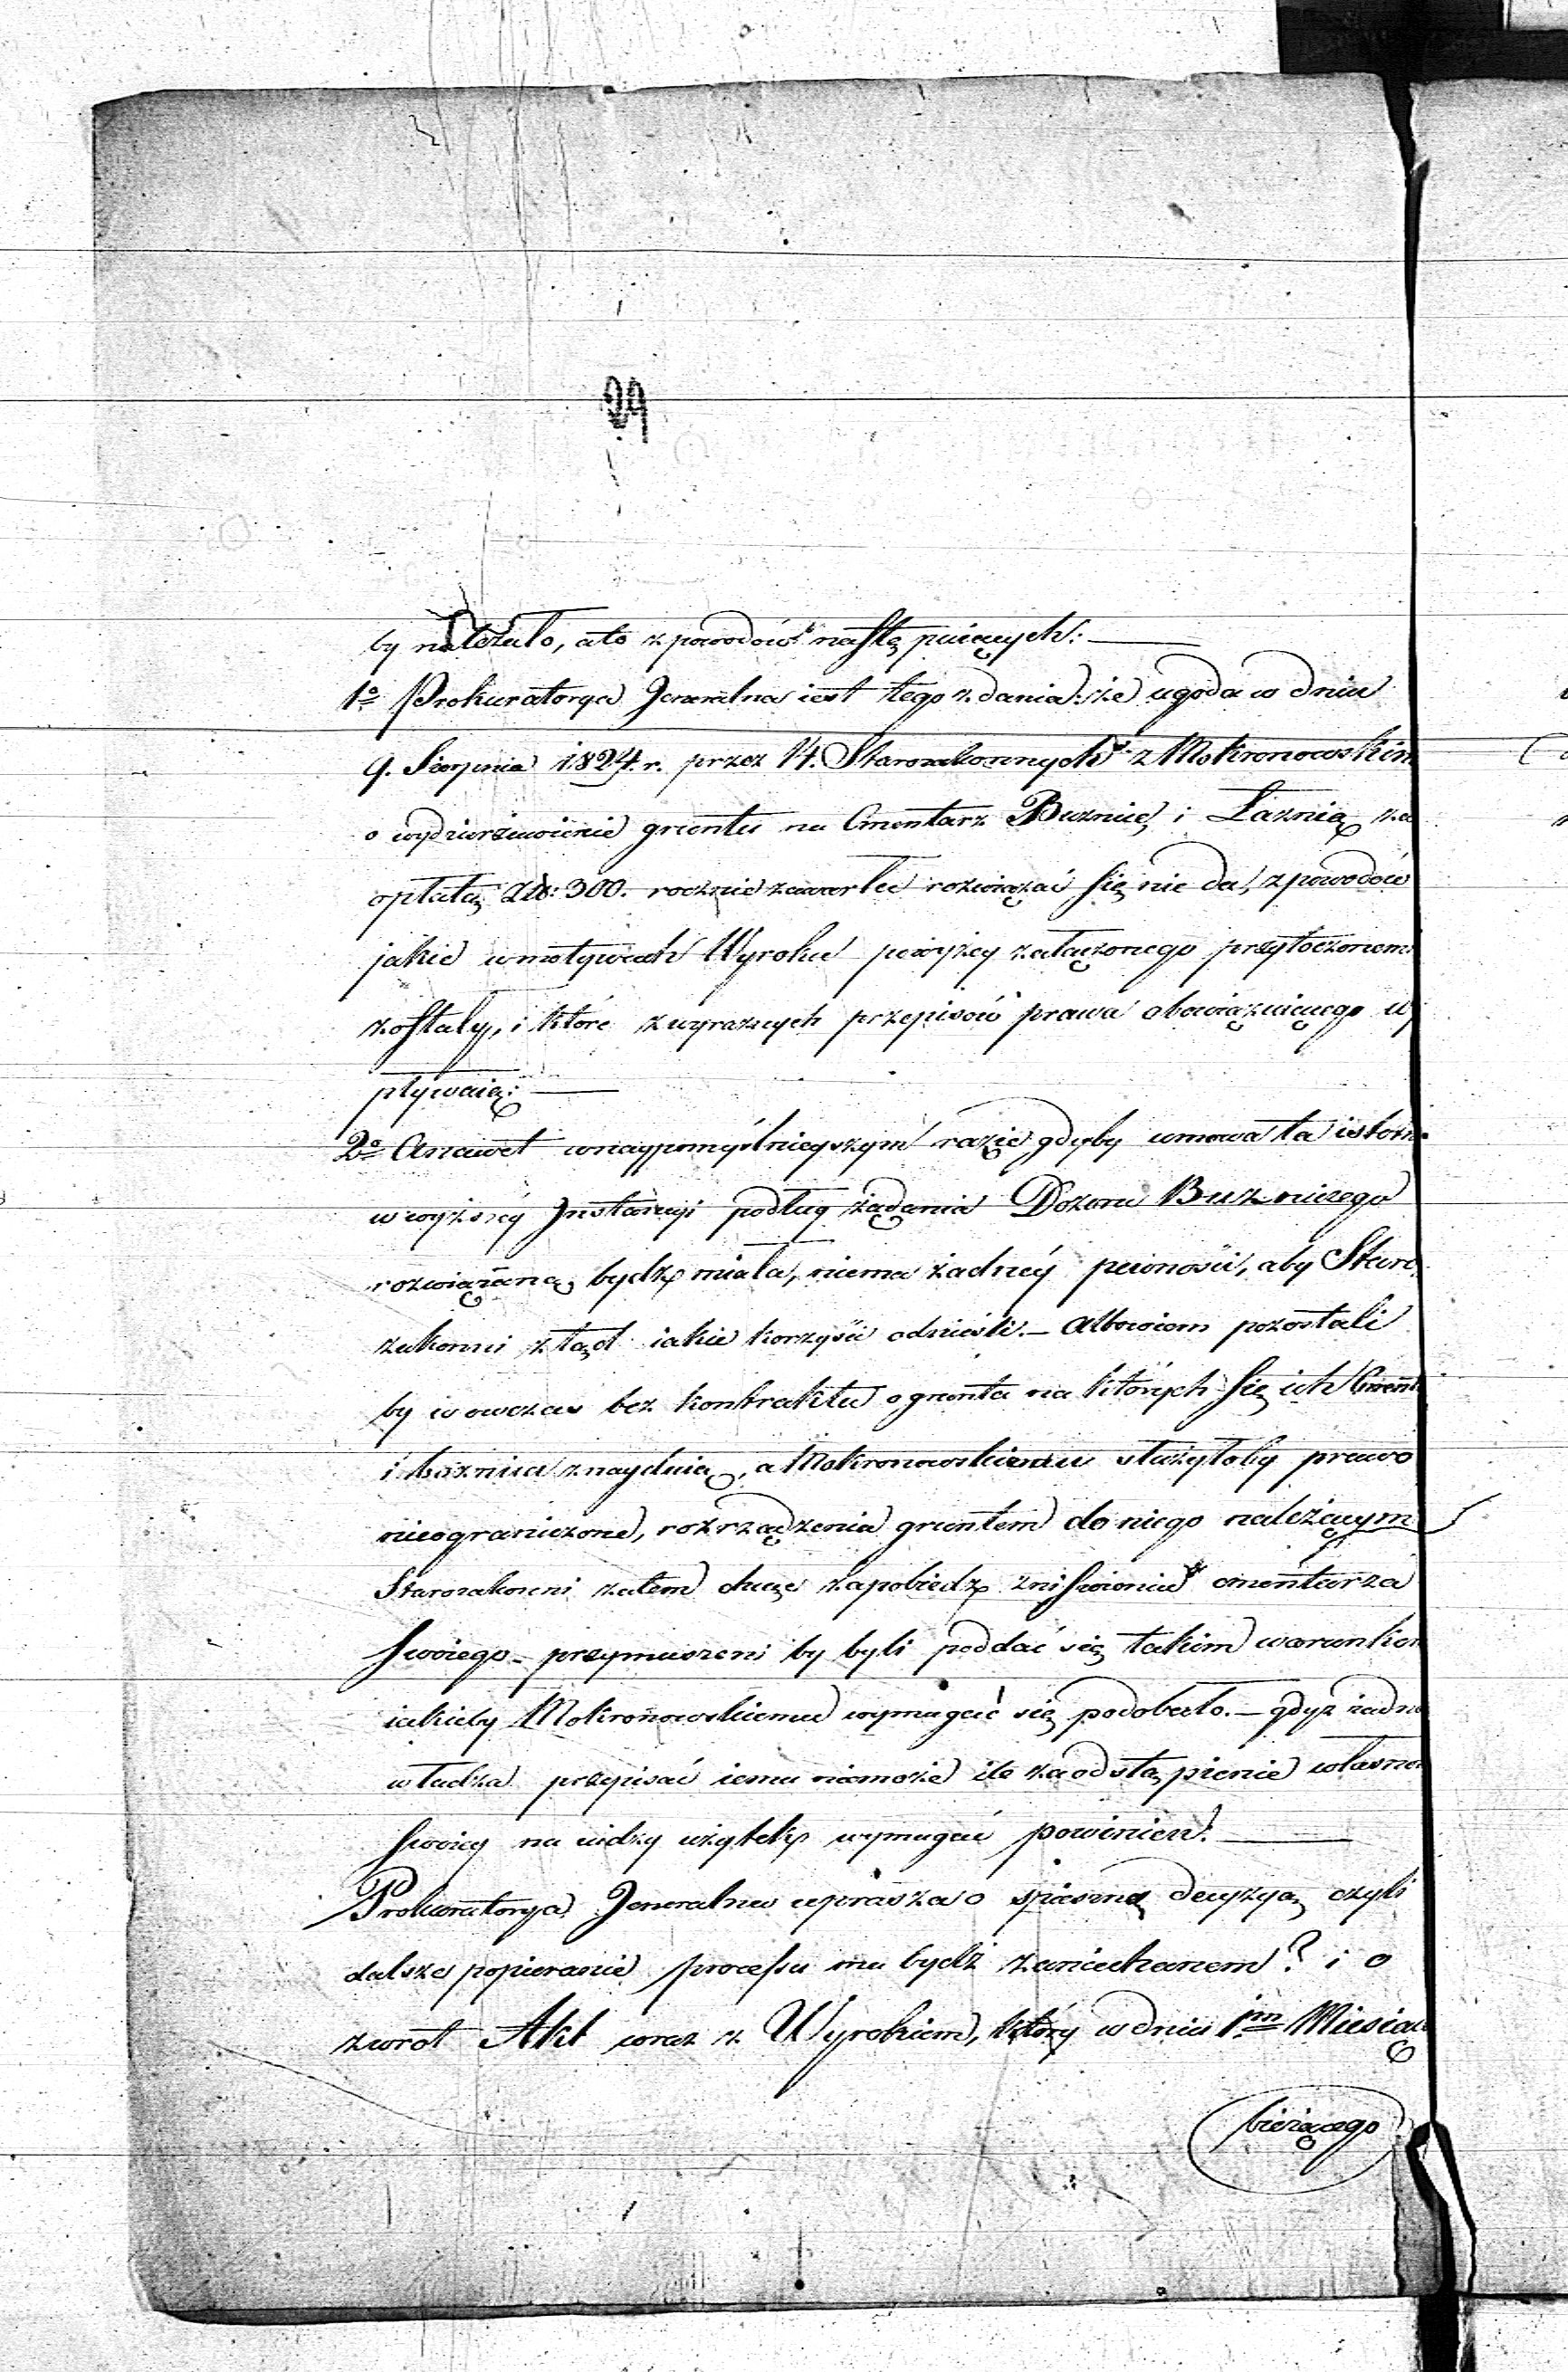 29
by należało, a to z powodów następuiących: —
1o Prokuratorya Jeneralna iest tego zdania: że ugoda w dniu
9. Sierpnia 1824. r. przez 14. Starozakonnych z Mokronowskim
o wydzierżawienie gruntu na Cmentarz Bużnicę i Łaznią za
opłatą Złt: 300. rocznie zawarta rozwiązać się nie da, z powodów
jakie w motywach Wyroku powyżey załączonego przytoczonemi
zostały, i które z wyraznych przepisów prawa obowiązuiącego wy
pływaią: —
2o A nawet w naypomyślnieyszym razie gdyby umowa ta istotn
w wyższey Instancyi podług żądania Dozoru Bużniczego
rozwiązaną bydz miała, niema żadney pewności, aby Staro
zakonni ztąd iakie korzyści odnieśli. — Albowiem pozostali
by wowczas bez kontraktu o grunta na których się ich Cment
i bożnica znayduią, a Mokronowskiemu służyłoby prawo
nieograniczone, rozrządzenia gruntem do niego należącym
Starozakonni zatem chcąc zapobiedz zniszczeniu cmentarza
swoiego — przymuszeni by byli poddać się takim warunkom
iakieby Mokronowskiemu wymagać się podobało. — gdyż żadna
władza przepisać iemu niemoże ile za odstąpienie własnoś
swoiey na cudzy użytek wymagać powinien. —
Prokuratorya Jeneralna uprasza o spieszną decyzyą czyli
dalsze popieranie processu ma bydź zaniechanem? i o
zwrot Akt wraz z Wyrokiem, który w dniu 1m Miesiąca
bieżącego